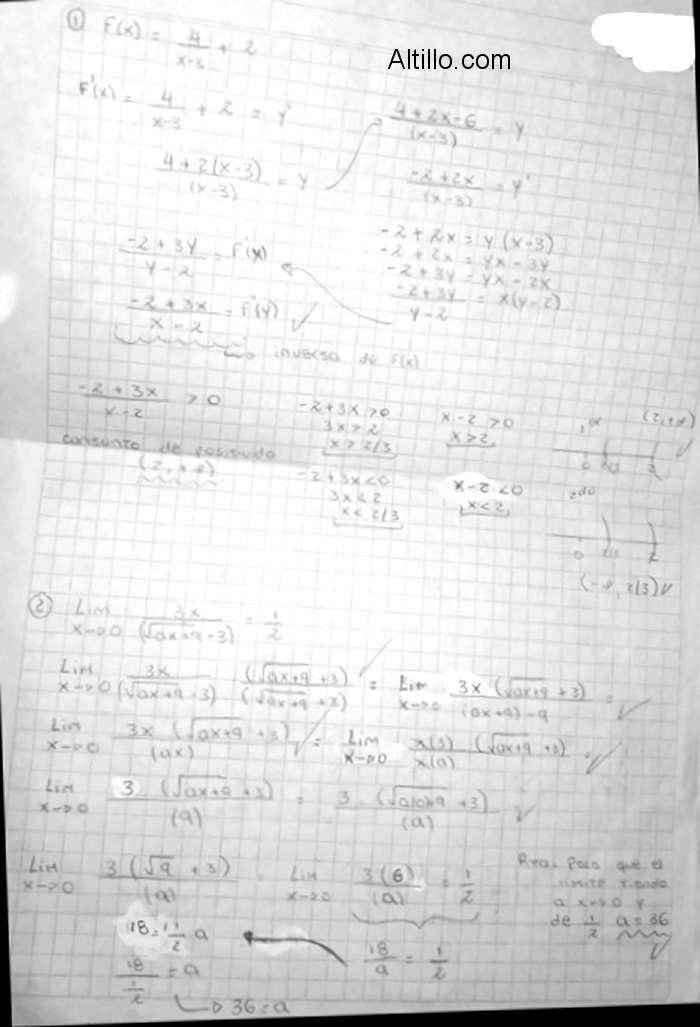 Altillo.com
① F(x) = 4/(x-3) + 2
F'(x) = 4/(x-3) + 2 = y
(4+2(x-3))/(x-3) = y
(4+2x-6)/(x-3) = y
(-2+2x)/(x-3) = y
-2+2x = y(x-3)
-2+2x = yx-3y
-2+3y = yx-2x
(-2+3y)/(y-2) = x(y-2)
(-2+3y)/(y-2) = F'(x)
(-2+3x)/(x-2) = F'(y) ✓
inversa de F(x)
(-2+3x)/(x-2) > 0
-2+3x>0
3x>2
x>2/3
x-2>0
x>2
(2,+∞) ✓
0 2/3 2
conjunto de positividad
(2,+∞)
-2+3x<0
3x<2
x<2/3
x-2<0
x<2
2do
0 2/3 2
(-∞, 2/3) ✓
② Lim x->0 3x/(√ax+9 -3) = 1/2
Lim x->0 3x/(√ax+9 -3) (√ax+9 +3)/(√ax+9 +3) = Lim x->0 3x (√ax+9 +3)/((ax+9)-9) = ✓
Lim x->0 3x (√ax+9 +3)/(ax) ✓ = Lim x->0 x(3) (√ax+9 +3)/x(a) = ✓
Lim x->0 3 (√ax+9 +3)/(a) = 3 (√a(0)+9 +3)/(a) ✓
Lim x->0 3(√9 +3)/(a) Lim x->0 3(6)/(a) = 1/2
18/a = 1/2
18 = 1/2 a
18/(1/2) = a
36 = a
Rta: Para que el
limite tienda
a x->0 y
de 1/2 a=36 ✓